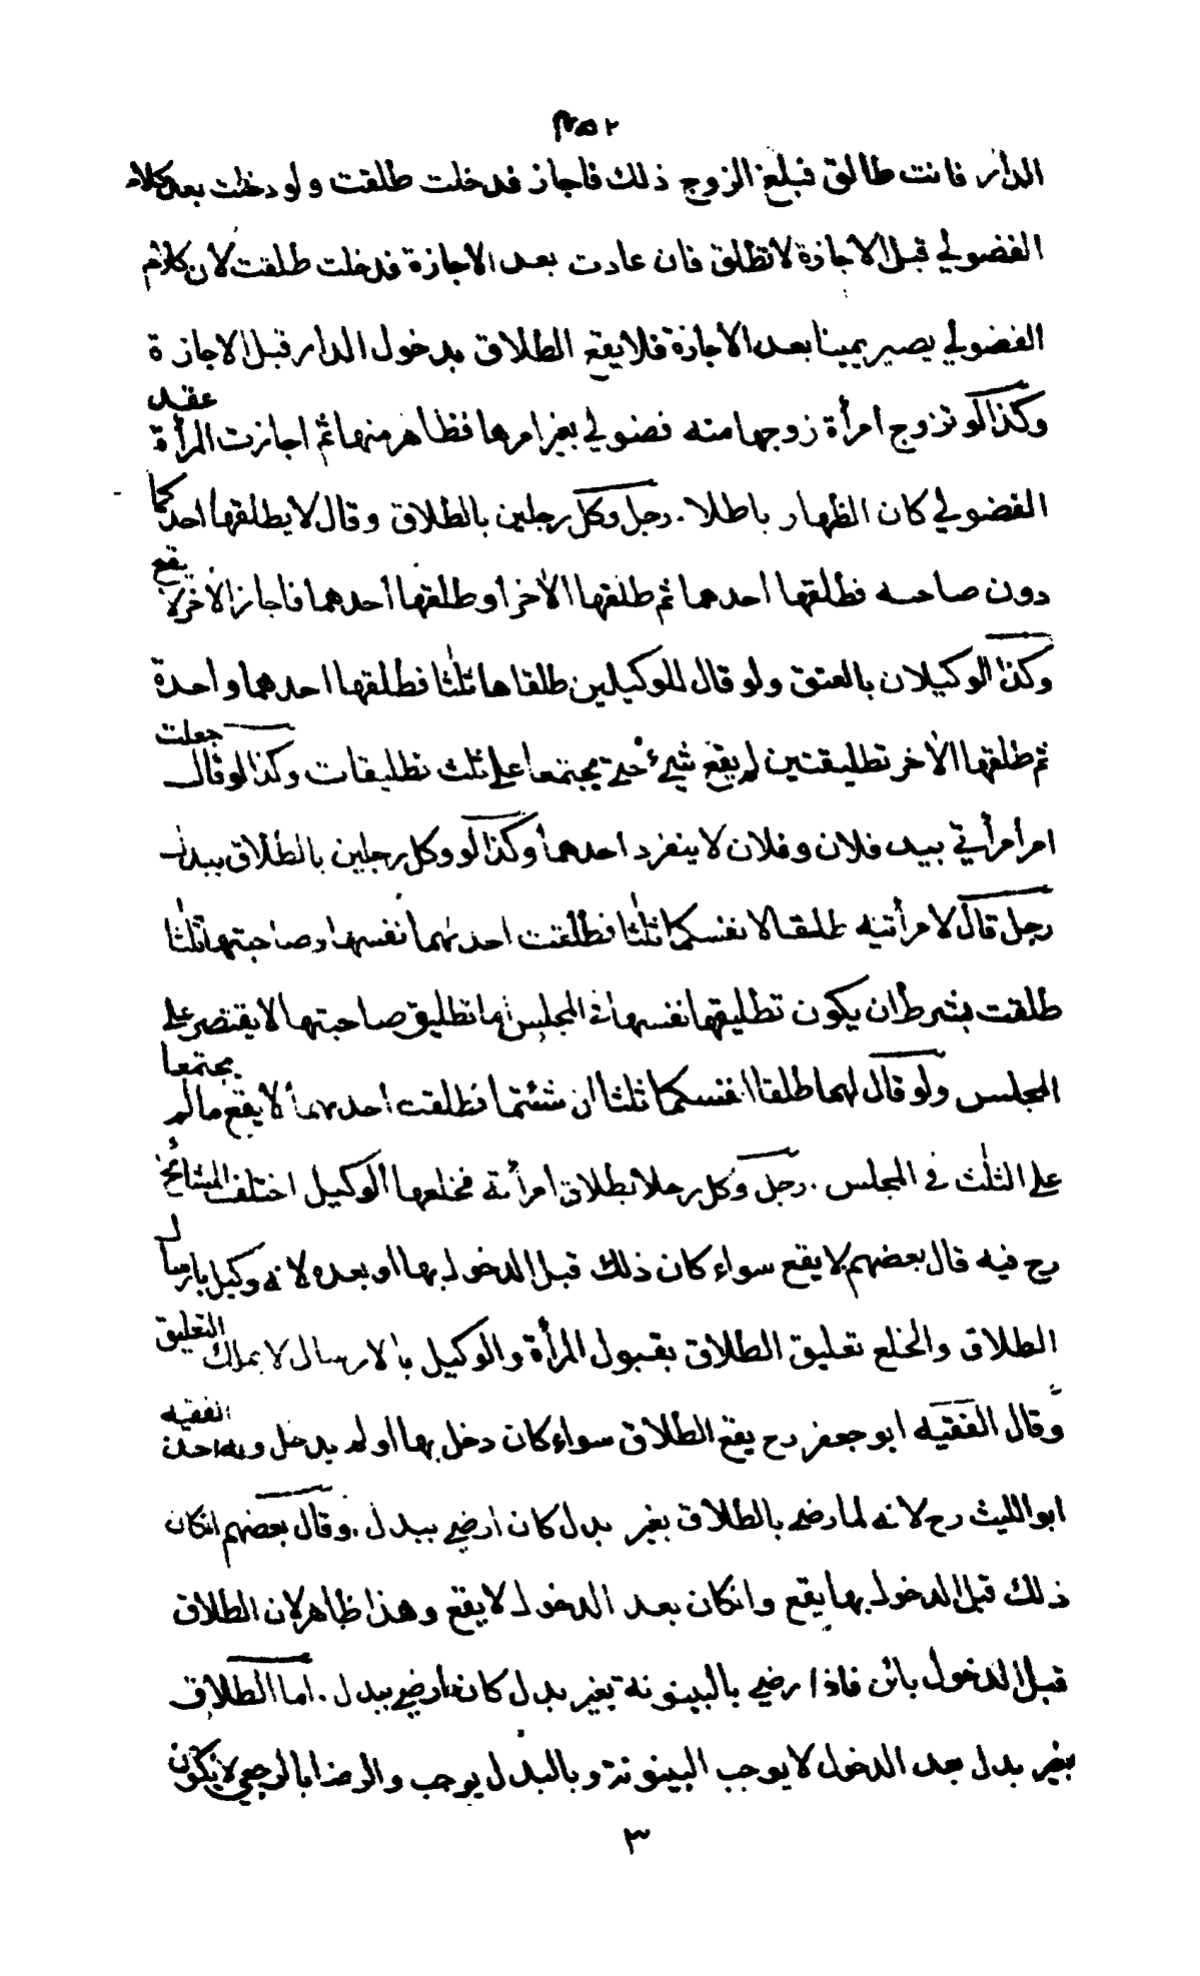 الدار فانت طالق فبلغ الزوج ذلك فاجاز فدخلت طلقت ولو دخلت بعد كلام
الفضولي قبل الاجازة لا تطلق فان عادت بعد الاجازة فدخلت طلقت لان كلام
الفضولي يصير يمينا بعد الاجازة فلا يقع الطلاق بدخول الدار قبل الاجازة
وكذا لو تزوج امرأة زوجها منه فضولي بغير امرها فظاهر منها ثم اجازت المرأة عقد
الفضولي كان الظهار باطلا . رجل وكل رجلين بالطلاق وقال لا يطلقها احدكما
دون صاحبه فطلقها احدهما ثم طلقها الآخر او طلقها احدهما فاجاز الآخر لا يقع
وكذا الوكيلان بالعتق ولو قال للوكيلين طلقاها ثلثا فطلقها احدهما واحدة
ثم طلقها الآخر تطليقتين لم يقع شيء حتى يجتمعا على ثلث تطليقات وكذا لو قال جعلت
امر امرأتي بيد فلان وفلان لا ينفرد احدهما وكذا لو وكل رجلين بالطلاق ببدل
رجل قال لامرأتيه طلقا انفسكما ثلثا فطلقت احدٮهما نفسها وصاحبتها ثلثا
طلقت بشرط ان يكون تطليقها نفسها في المجلس اما تطليق صاحبتها لا يقتصر على
المجلس ولو قال لهما طلقا انفسكما ثلثا ان شئتما فطلقت احدٮهما لا يقع ما لم يجتمعا
على الثلث في المجلس . رجل وكل رجلا بطلاق امرأته فخلعها الوكيل اختلف المشائخ
رح فيه قال بعضهم لا يقع سواء كان ذلك قبل الدخول بها او بعده لانه وكيل بارسال
الطلاق والخلع تعليق الطلاق بقبول المرأة والوكيل بالارسال لا يملك التعليق
وقال الفقيه ابو جعفر رح يقع الطلاق سواء كان دخل بها او لم يدخل وبه اخذ الفقيه
ابو الليث رح لانه لما رضي بالطلاق بغير بدل كان ارضي ببدل . وقال بعضهم انكان
ذلك قبل الدخول بها يقع وانكان بعد الدخول لا يقع وهذا ظاهر لان الطلاق
قبل الدخول بائن فاذا رضي بالبينونة بغير بدل كان ارضي ببدل . اما الطلاق
بغير بدل بعد الدخول لا يوجب البينونة وبالبدل يوجب والرضا بالرجعي لا يكون
٣